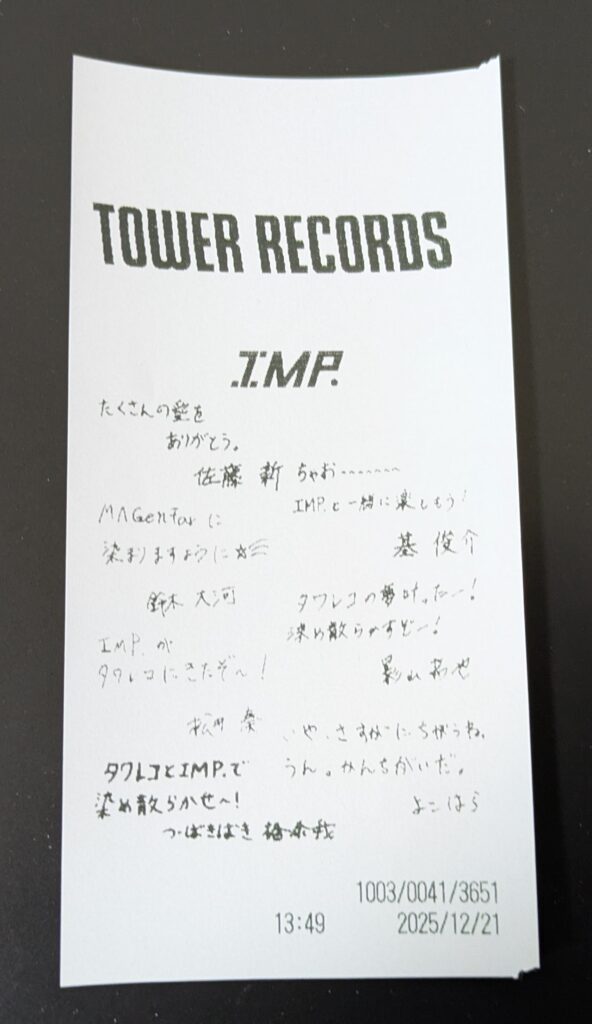 TOWER RECORDS
I.MP.
たくさんの愛を
ありがとう。
佐藤 新 ちゃお~~~~~~~
MAGentar に
染まりますように☆彡
鈴木 大河
IMP. が
タワレコにきたぞ~!
松井 奏
タワレコとIMP.で
染め散らかせ~!
つばきばき 椿泰我
IMP.と一緒に楽しもう!
基 俊介
タワレコの夢叶ったー!
染め散らかすぞー!
影山拓也
いや、さすがにちがうね。
うん。かんちがいだ。
よこはら
1003/0041/3651
13:49 2025/12/21